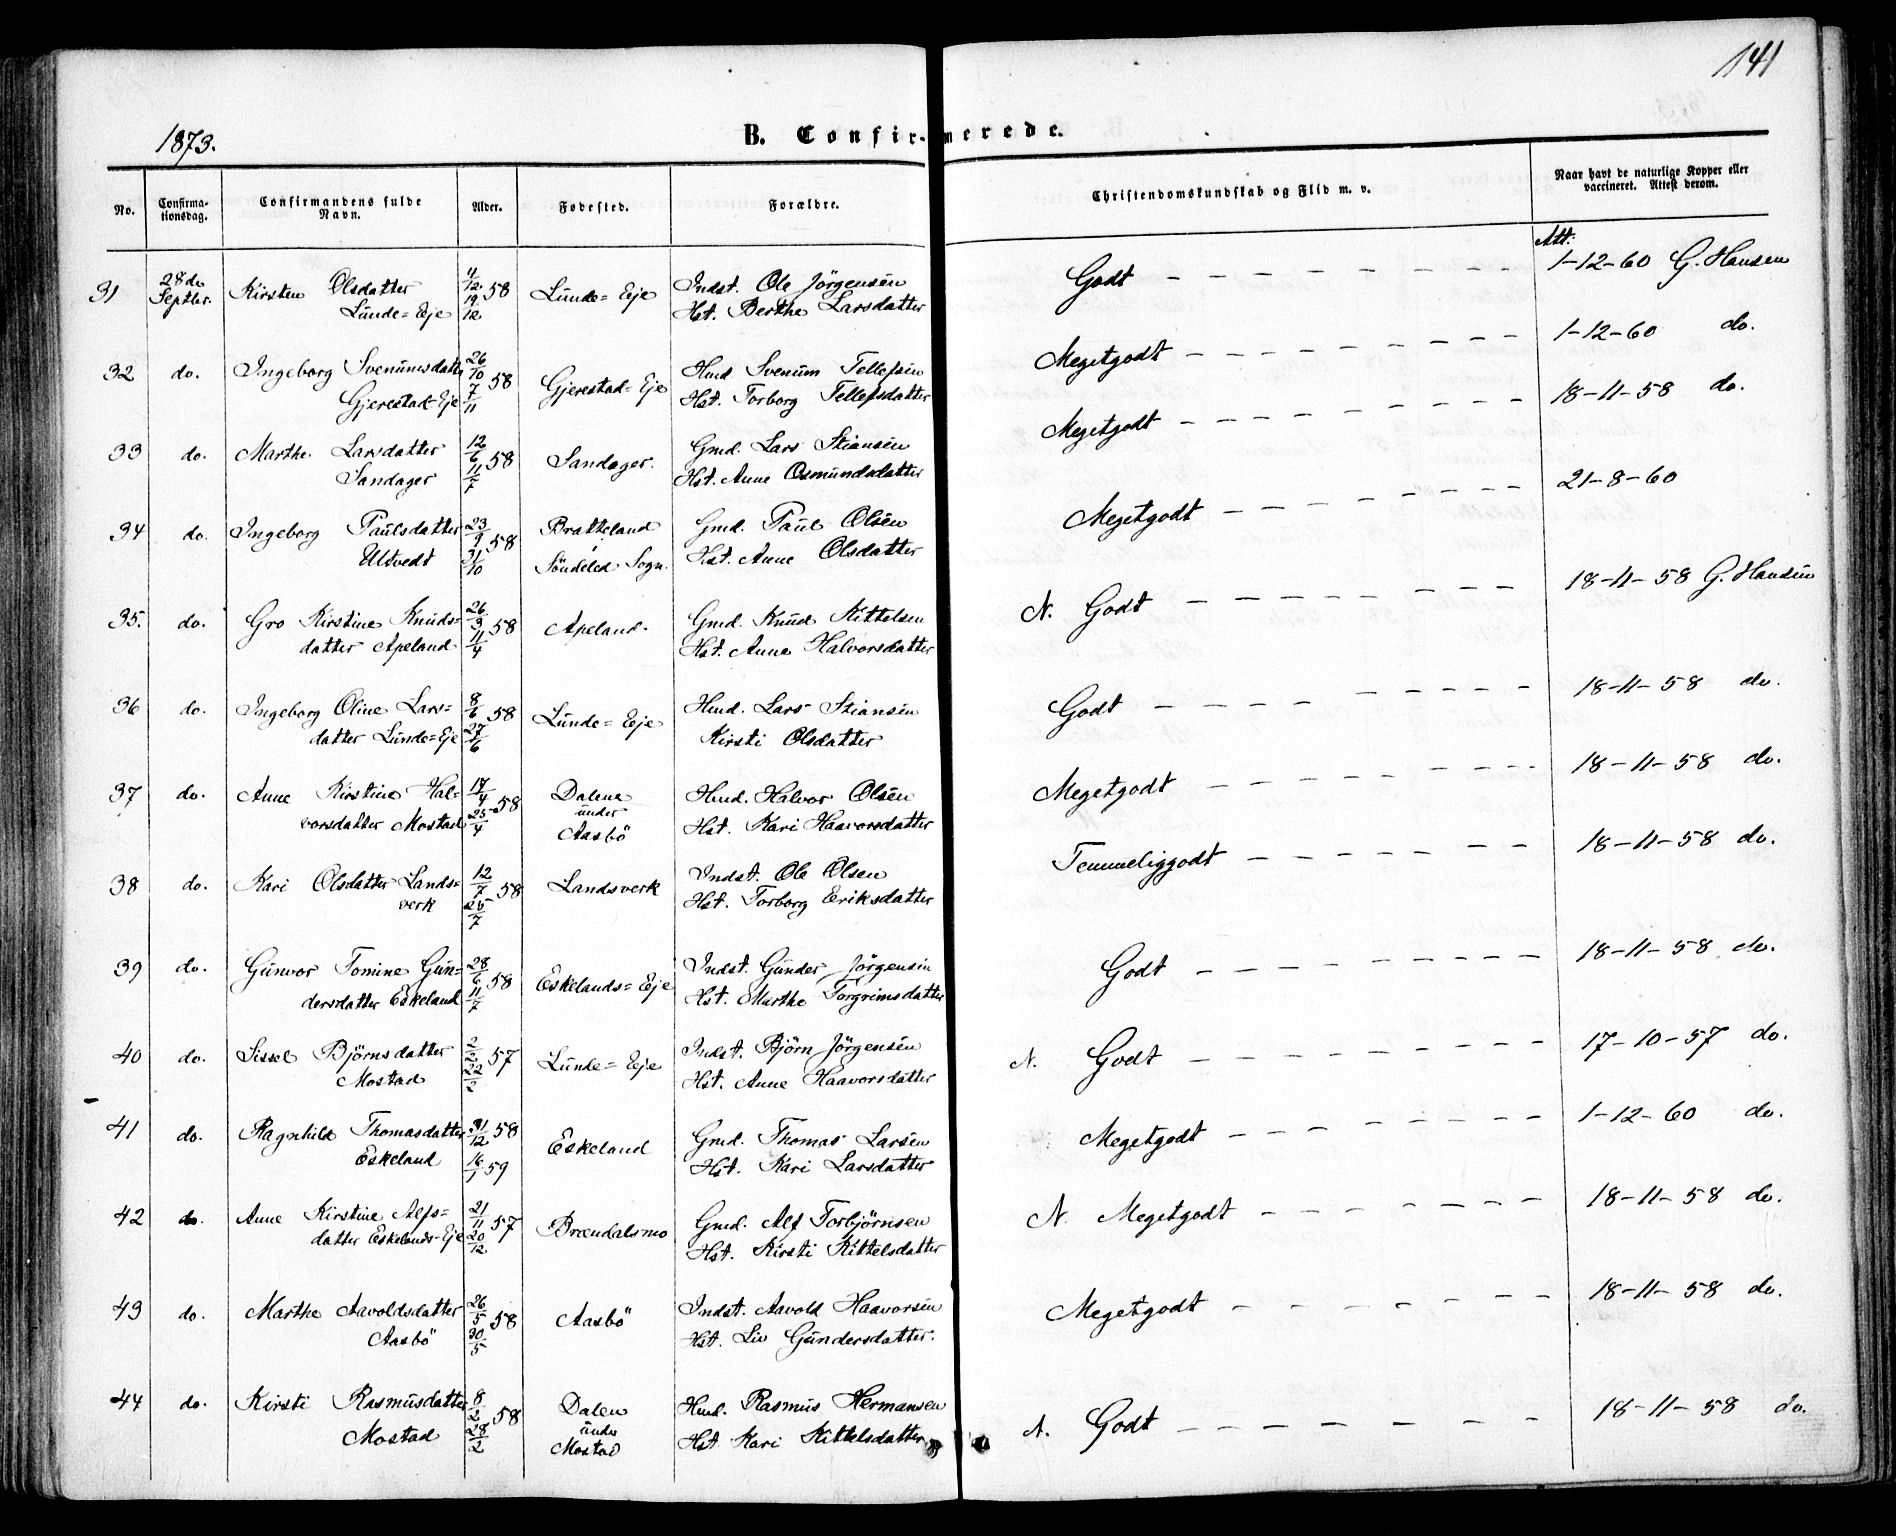 141
1873.
B. Confir-merede.
No.
Confirma-
tionsdag.
Confirmandens fulde
Navn.
Alder.
Fødested.
Forældre.
Christendomskundskab og Flid m. v.
Naar havt de naturlige Kopper eller
vaccineret. Attest derom.
31 28de Kirsten Olsdatter 4/12 58 Lunde=Eje Indst. Ole Jörgensen Godt Att: 1-12-60 G. Hansen
Septbr. Lunde=Eje 19/12 Hst. Berthe Larsdatter
32 do. Ingeborg Svenumsdatter 26/10 58 Gjerestad=Eje Hmd Svenum Tellefsen Megetgodt 1-12-60 do.
Gjerestad-Eje 7/11 Hst. Torborg Tellefsdatter
33 do. Marthe Larsdatter 12/6 58 Sandager. Gmd. Lars Stiansen Megetgodt 18-11-58 do.
Sandager 11/7 Hst. Anne Osmundsdatter
34 do. Ingeborg Paulsdatter 23/9 58 Bratteland Gmd. Paul Olsen Megetgodt 21-8-60
Ulvedt 31/10 Söndeled Sogn. Hst. Anne Olsdatter
35. do. Gro Kirstine Knuds= 26/3 58 Apeland. Gmd. Knud Kittelsen N. Godt 18-11-58 G. Hansen
datter Apeland 11/4 Hst. Anne Halvorsdatter
36 do. Ingeborg Oline Lars= 8/6 58 Lunde=Eje Hmd. Lars Stiansen Godt 18-11-58 do.
datter Lunde=Eje 27/6 Kirsti Olsdatter
37 do. Anne Kirstine Hal= 17/4 58 Dalene Hmd. Halvor Olsen Megetgodt 18-11-58 do.
vorsdatter Mostad 25/4 under
Aasbö Hst. Kari Haavorsdatter
38 do. Kari Olsdatter Lands= 12/7 58 Landsverk Indst. Ole Olsen Temmeliggodt 18-11-58 do.
verk 25/7 Hst. Torborg Eriksdatter
39 do. Gunvor Tomine Gun= 28/6 58 Eskelands=Eje Indst. Gunder Jörgensen Godt 18-11-58 do.
dersdatter Eskeland 11/7 Hst. Marthe Torgrimsdatter
40 do. Sissel Björnsdatter 2/2 57 Lunde=Eje Indst. Björn Jörgensen N. Godt 17-10-57 do.
Mostad 22/2 Hst. Anne Haavorsdatter
41 do. Ragnhild Thomasdatter 31/12 58 Eskeland Gmd. Thomas Larsen Megetgodt 1-12-60 do.
Eskeland 16/1 59 Hst. Kari Larsdatter
42 do. Anne Kirstine Alfs= 21/11 57 Brændalsmo Gmd. Alf Torbjörnsen N. Megetgodt 18-11-58 do.
datter Eskelands-Eje 20/12. Hst. Kirsti Kittelsdatter
43 do. Marthe Aavoldsdatter 26/5 58 Aasbö Indst. Aavold Haavorsen Megetgodt 18-11-58 do.
Aasbö 30/5 Hst. Liv Gundersdatter.
44 do. Kirsti Rasmusdatter 8/2 58 Dalen Hmd. Rasmus Hermansen N. Godt 18-11-58 do.
Mostad 28/2 under
Mostad Hst. Kari Kittelsdatter